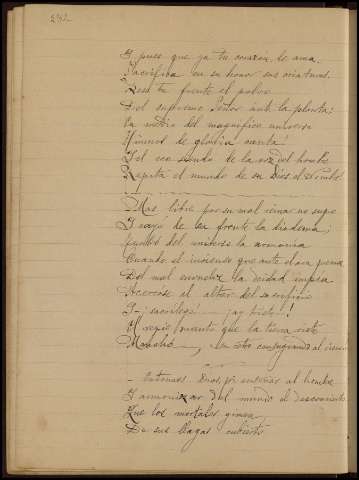 Y pues que ya tu corazón le ama,
Sacrifica en su honor sus criaturas.
Besa tu frente el polvo
Del supremo Señor ante la planta:
La del magnífico universo
Himnos de gloria canta!
Y el eco siendo de la voz del hombre
Repita el mundo de su Dios el nombre!
—Mas libre por su mal reinar no supo
Y cayó de su frente la diadema;
del universo la armonía
Cuando el incienso que ante el ara quema
Del mal la deidad impía
Acercóse al altar del sacrificio
Y — sacrílego — ¡ay triste!!
El regio manto que la tierra viste
Manchó —, al
— Entonces Dios, pi enseñar al hombre
Y armonizar del mundo el desconcierto
Que los mortales gimen
De sus llagas cubierto